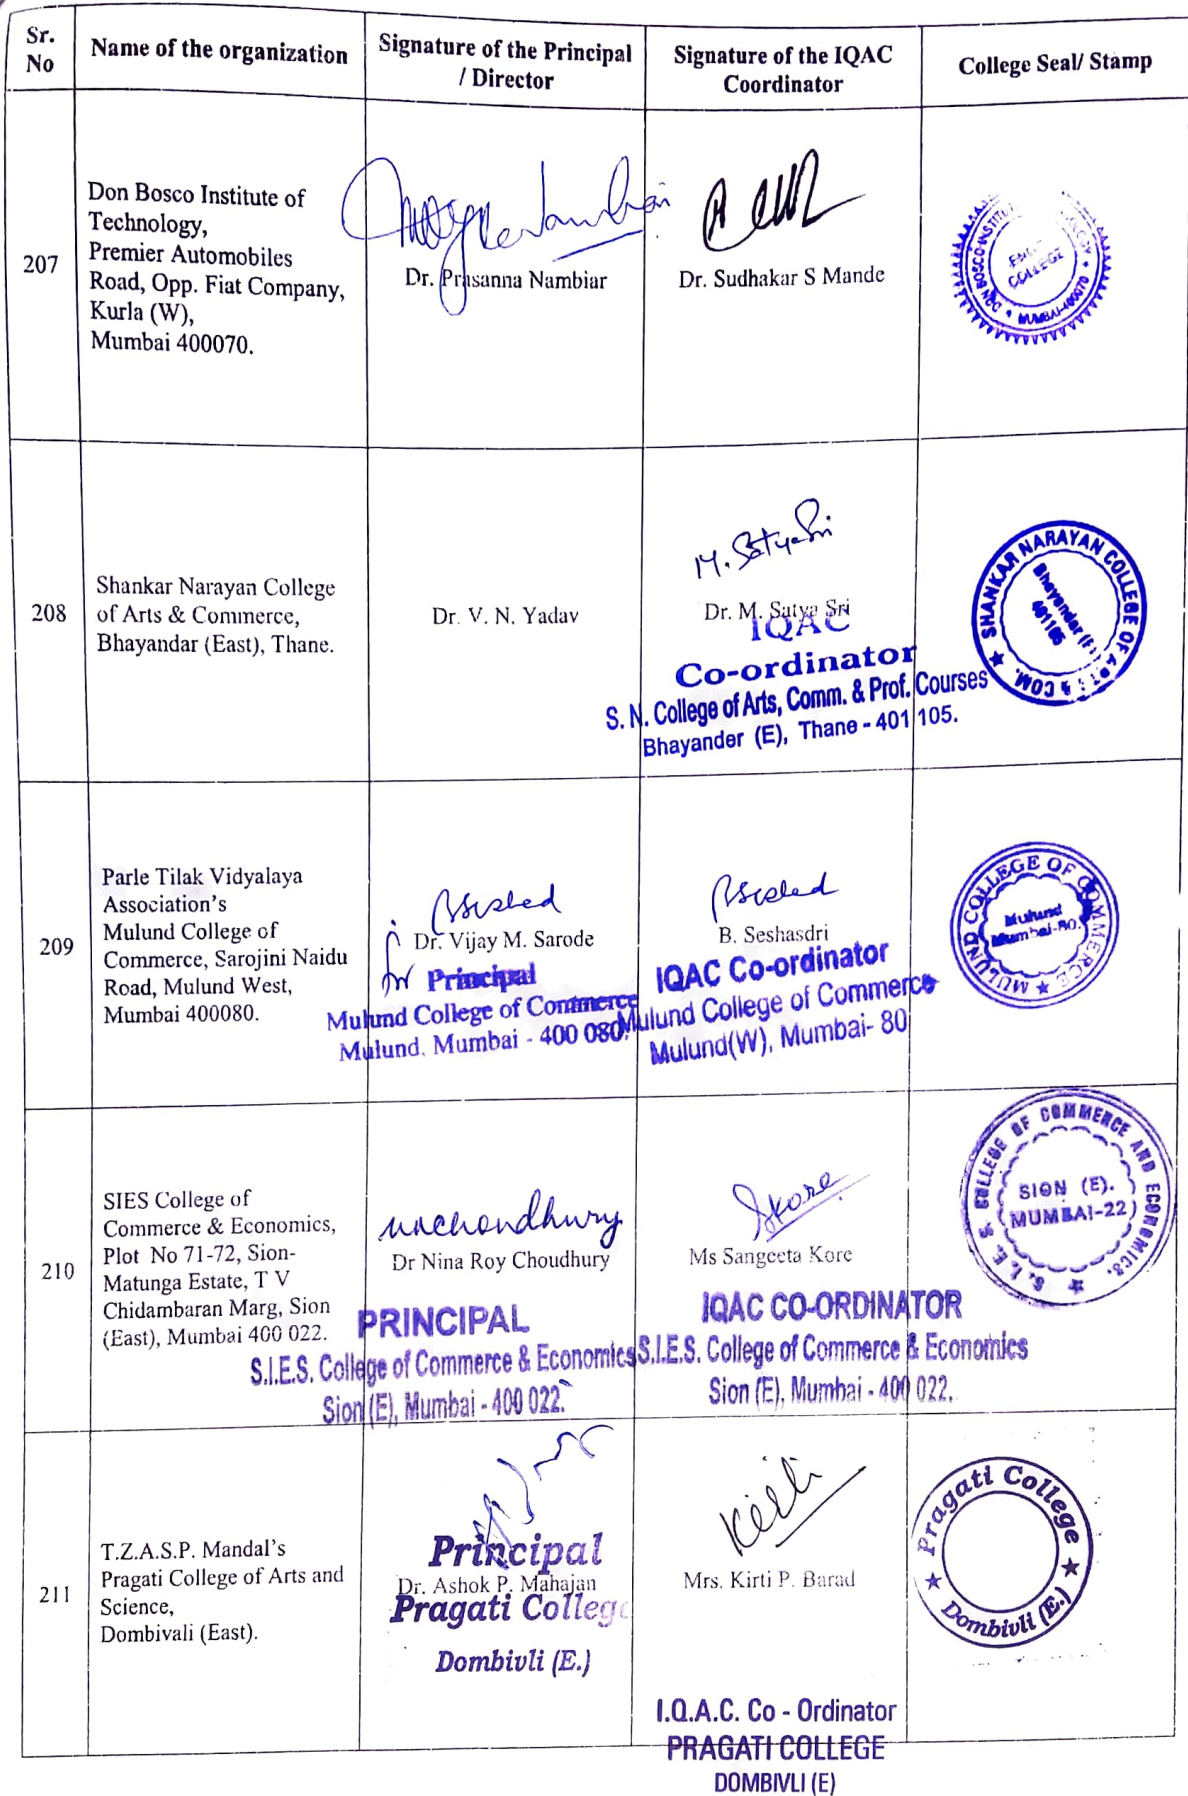 Sr.
No
Name of the organization
Signature of the Principal
/ Director
Signature of the IQAC
Coordinator
College Seal/ Stamp
207
Don Bosco Institute of
Technology,
Premier Automobiles
Road, Opp. Fiat Company,
Kurla (W),
Mumbai 400070.
Dr. Prasanna Nambiar
Dr. Sudhakar S Mande
DON BOSCO INSTITU
COLLEGE
MUMBAI-400070
208
Shankar Narayan College
of Arts & Commerce,
Bhayandar (East), Thane.
Dr. V. N. Yadav
M. SatyaSri
Dr. M. Satya Sri
IQAC
Co-ordinator
S. N. College of Arts, Comm. & Prof. Courses
Bhayander (E), Thane - 401 105.
★ SHANKAR NARAYAN COLLEGE OF ARTS & COM.
Bhayandar (E)
401105
209
Parle Tilak Vidyalaya
Association's
Mulund College of
Commerce, Sarojini Naidu
Road, Mulund West,
Mumbai 400080.
Dr. Vijay M. Sarode
for Principal
Mulund College of Commerce
Mulund, Mumbai - 400 080.
B. Seshasdri
IQAC Co-ordinator
Mulund College of Commerce
Mulund(W), Mumbai- 80
MULUND COLLEGE OF COMMERCE ★
Mulund
Mumbai-80.
210
SIES College of
Commerce & Economics,
Plot No 71-72, Sion-
Matunga Estate, T V
Chidambaran Marg, Sion
(East), Mumbai 400 022.
Dr Nina Roy Choudhury
PRINCIPAL
S.I.E.S. College of Commerce & Economics
Sion (E), Mumbai - 400 022.
Skore
Ms Sangeeta Kore
IQAC CO-ORDINATOR
S.I.E.S. College of Commerce & Economics
Sion (E), Mumbai - 400 022.
S. I. E. S. COLLEGE OF COMMERCE AND ECONOMICS. ★
SION (E).
MUMBAI-22
211
T.Z.A.S.P. Mandal's
Pragati College of Arts and
Science,
Dombivali (East).
Principal
Dr. Ashok P. Mahajan
Pragati College
Dombivli (E.)
Kirti
Mrs. Kirti P. Barad
I.Q.A.C. Co - Ordinator
PRAGATI COLLEGE
DOMBIVLI (E)
Pragati College
★ Dombivli (E.) ★